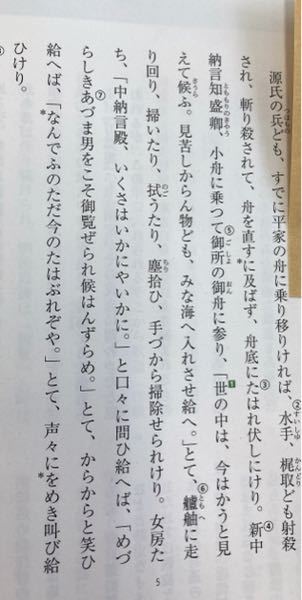 源氏の兵ども、すでに平家の舟に乗り移りければ、②水手、梶取ども射殺
され、斬り殺されて、舟を直すに及ばず、舟底に③たはれ伏しにけり。④新中
納言知盛卿、小舟に乗つて⑤御所の御舟に参り、「1世の中は、今はかうと見
えて候ふ。見苦しからん物ども、みな海へ入れさせ給へ。」とて、⑥艫舳に走
り回り、掃いたり、拭うたり、塵拾ひ、手づから掃除せられけり。女房た
ち、「中納言殿、いくさはいかにやいかに。」と口々に問ひ給へば、「めづ
らしき⑦あづま男をこそ御覧ぜられ候はんずらめ。」とて、からからと笑ひ
給へば、「なんでふのただ今のたはぶれぞや。」とて、声々にをめき叫び給
ひけり。
5